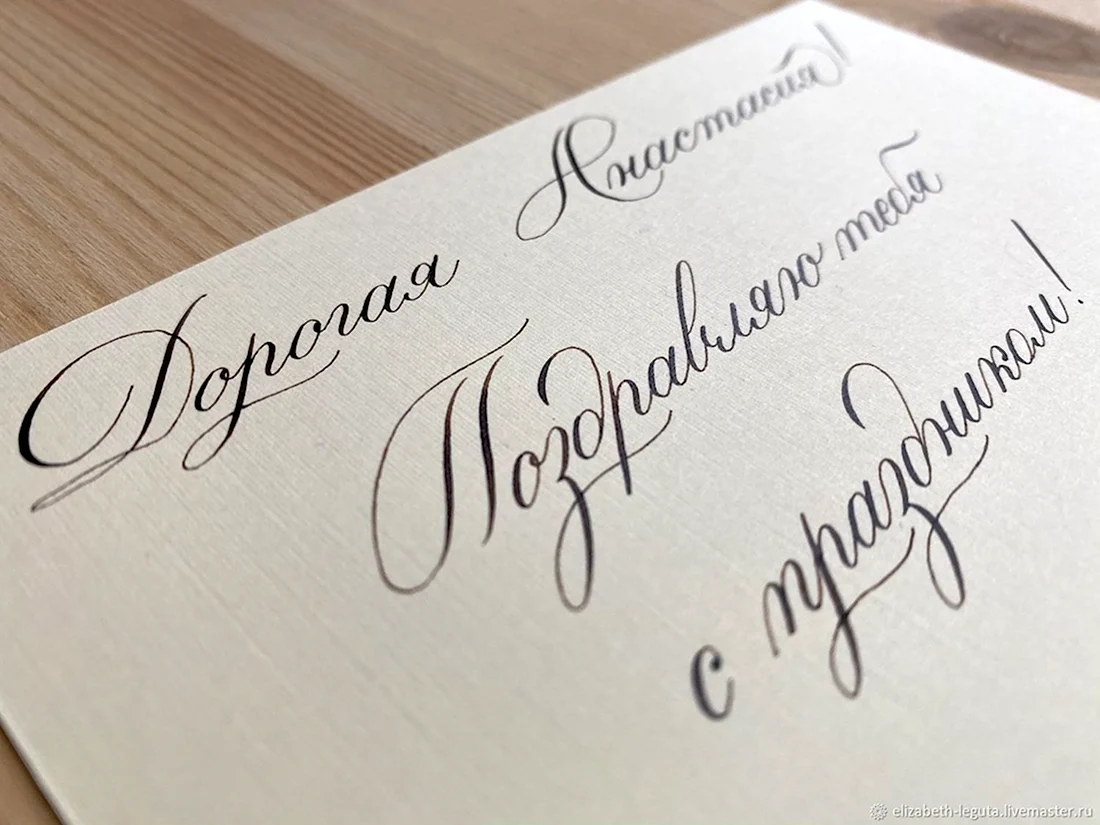 Дорогая Анастасия!
Поздравляю тебя
с праздником!
elizabeth-leguta.livemaster.ru